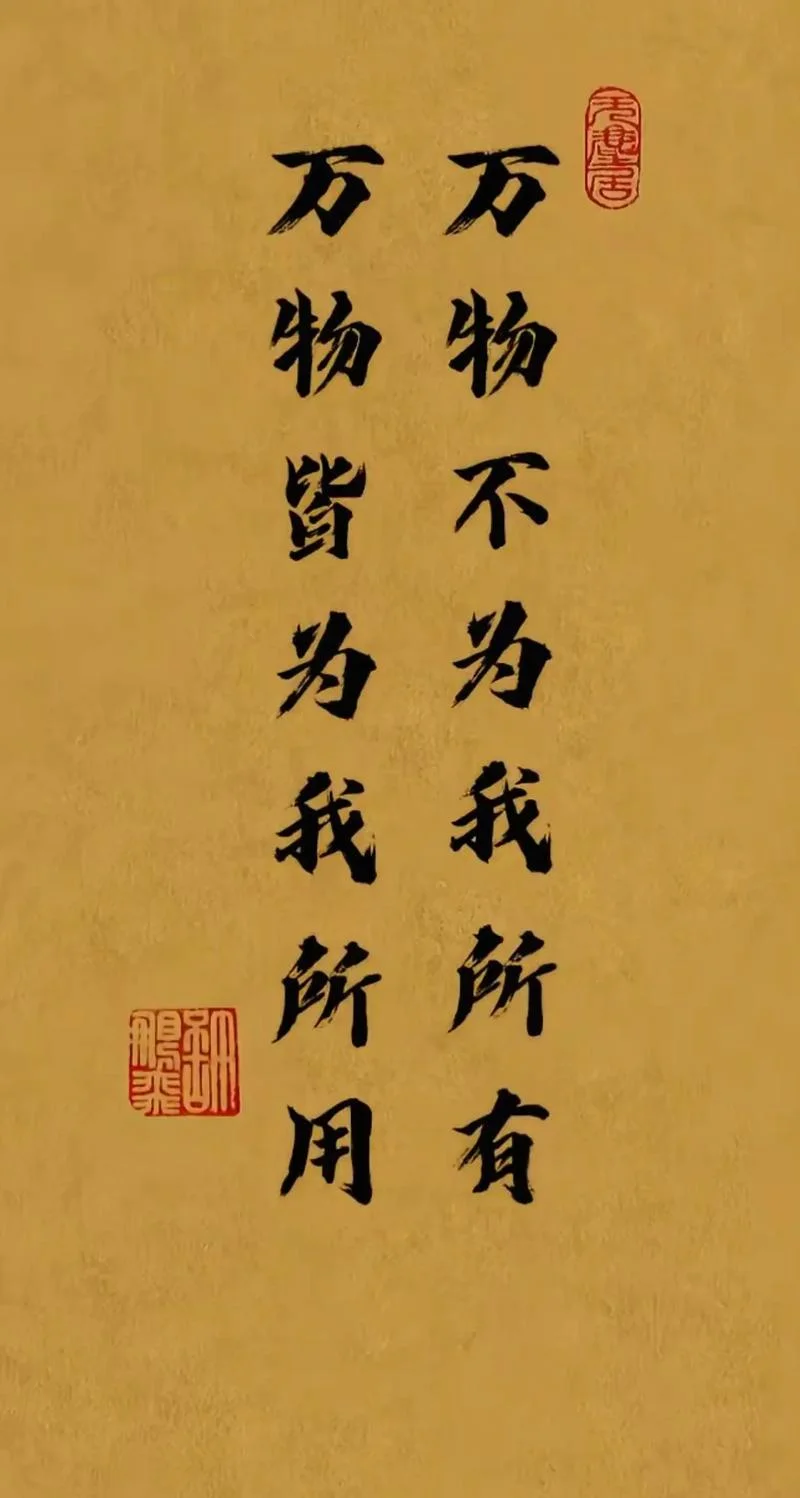 万物不为我所有
万物皆为我所用